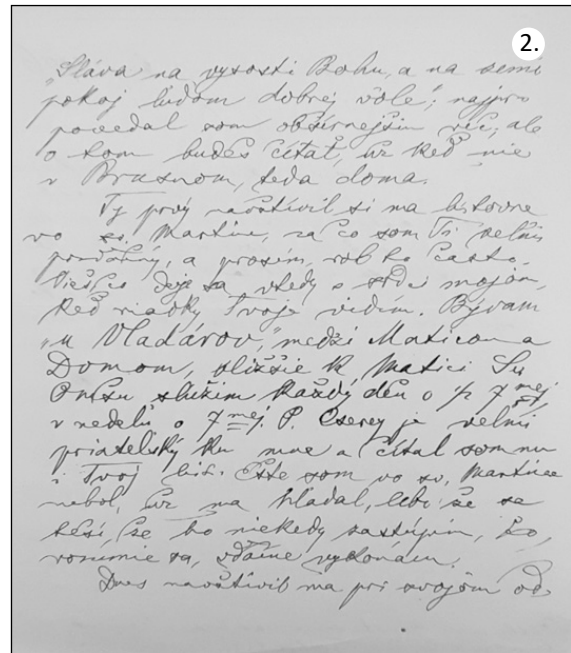 2.
„Sláva na vysosti Bohu, a na zemi
pokoj ľudom dobrej vôle“; najprv
povedal som obšírnejšiu reč, ale
o tom budeš čítať, už keď nie
v Brusnom, teda doma.
Ty prvý navštívil si ma listovne
vo sv. Martine, za čo som Ti veľmi
povďačný, a prosím, rob to často.
Vieš čo deje sa vtedy v srdci mojom,
keď riadky Tvoje vidím. Bývam
„u Vladárov,“ medzi Maticou a
Domom, bližšie k Matici. Sv.
Omšu slúžim každý deň o 1/2 7 mej,
v nedeľu o 7 mej. P. Cserey je veľmi
priateľský ku mne a čítal som mu
i Tvoj list. Ešte som vo sv. Martine
nebol, už ma hľadal, lebo že sa
teší, že ho niekedy zastúpim, čo,
rozumie sa, vďačne vykonám.
Dnes navštívil ma pri svojom od-